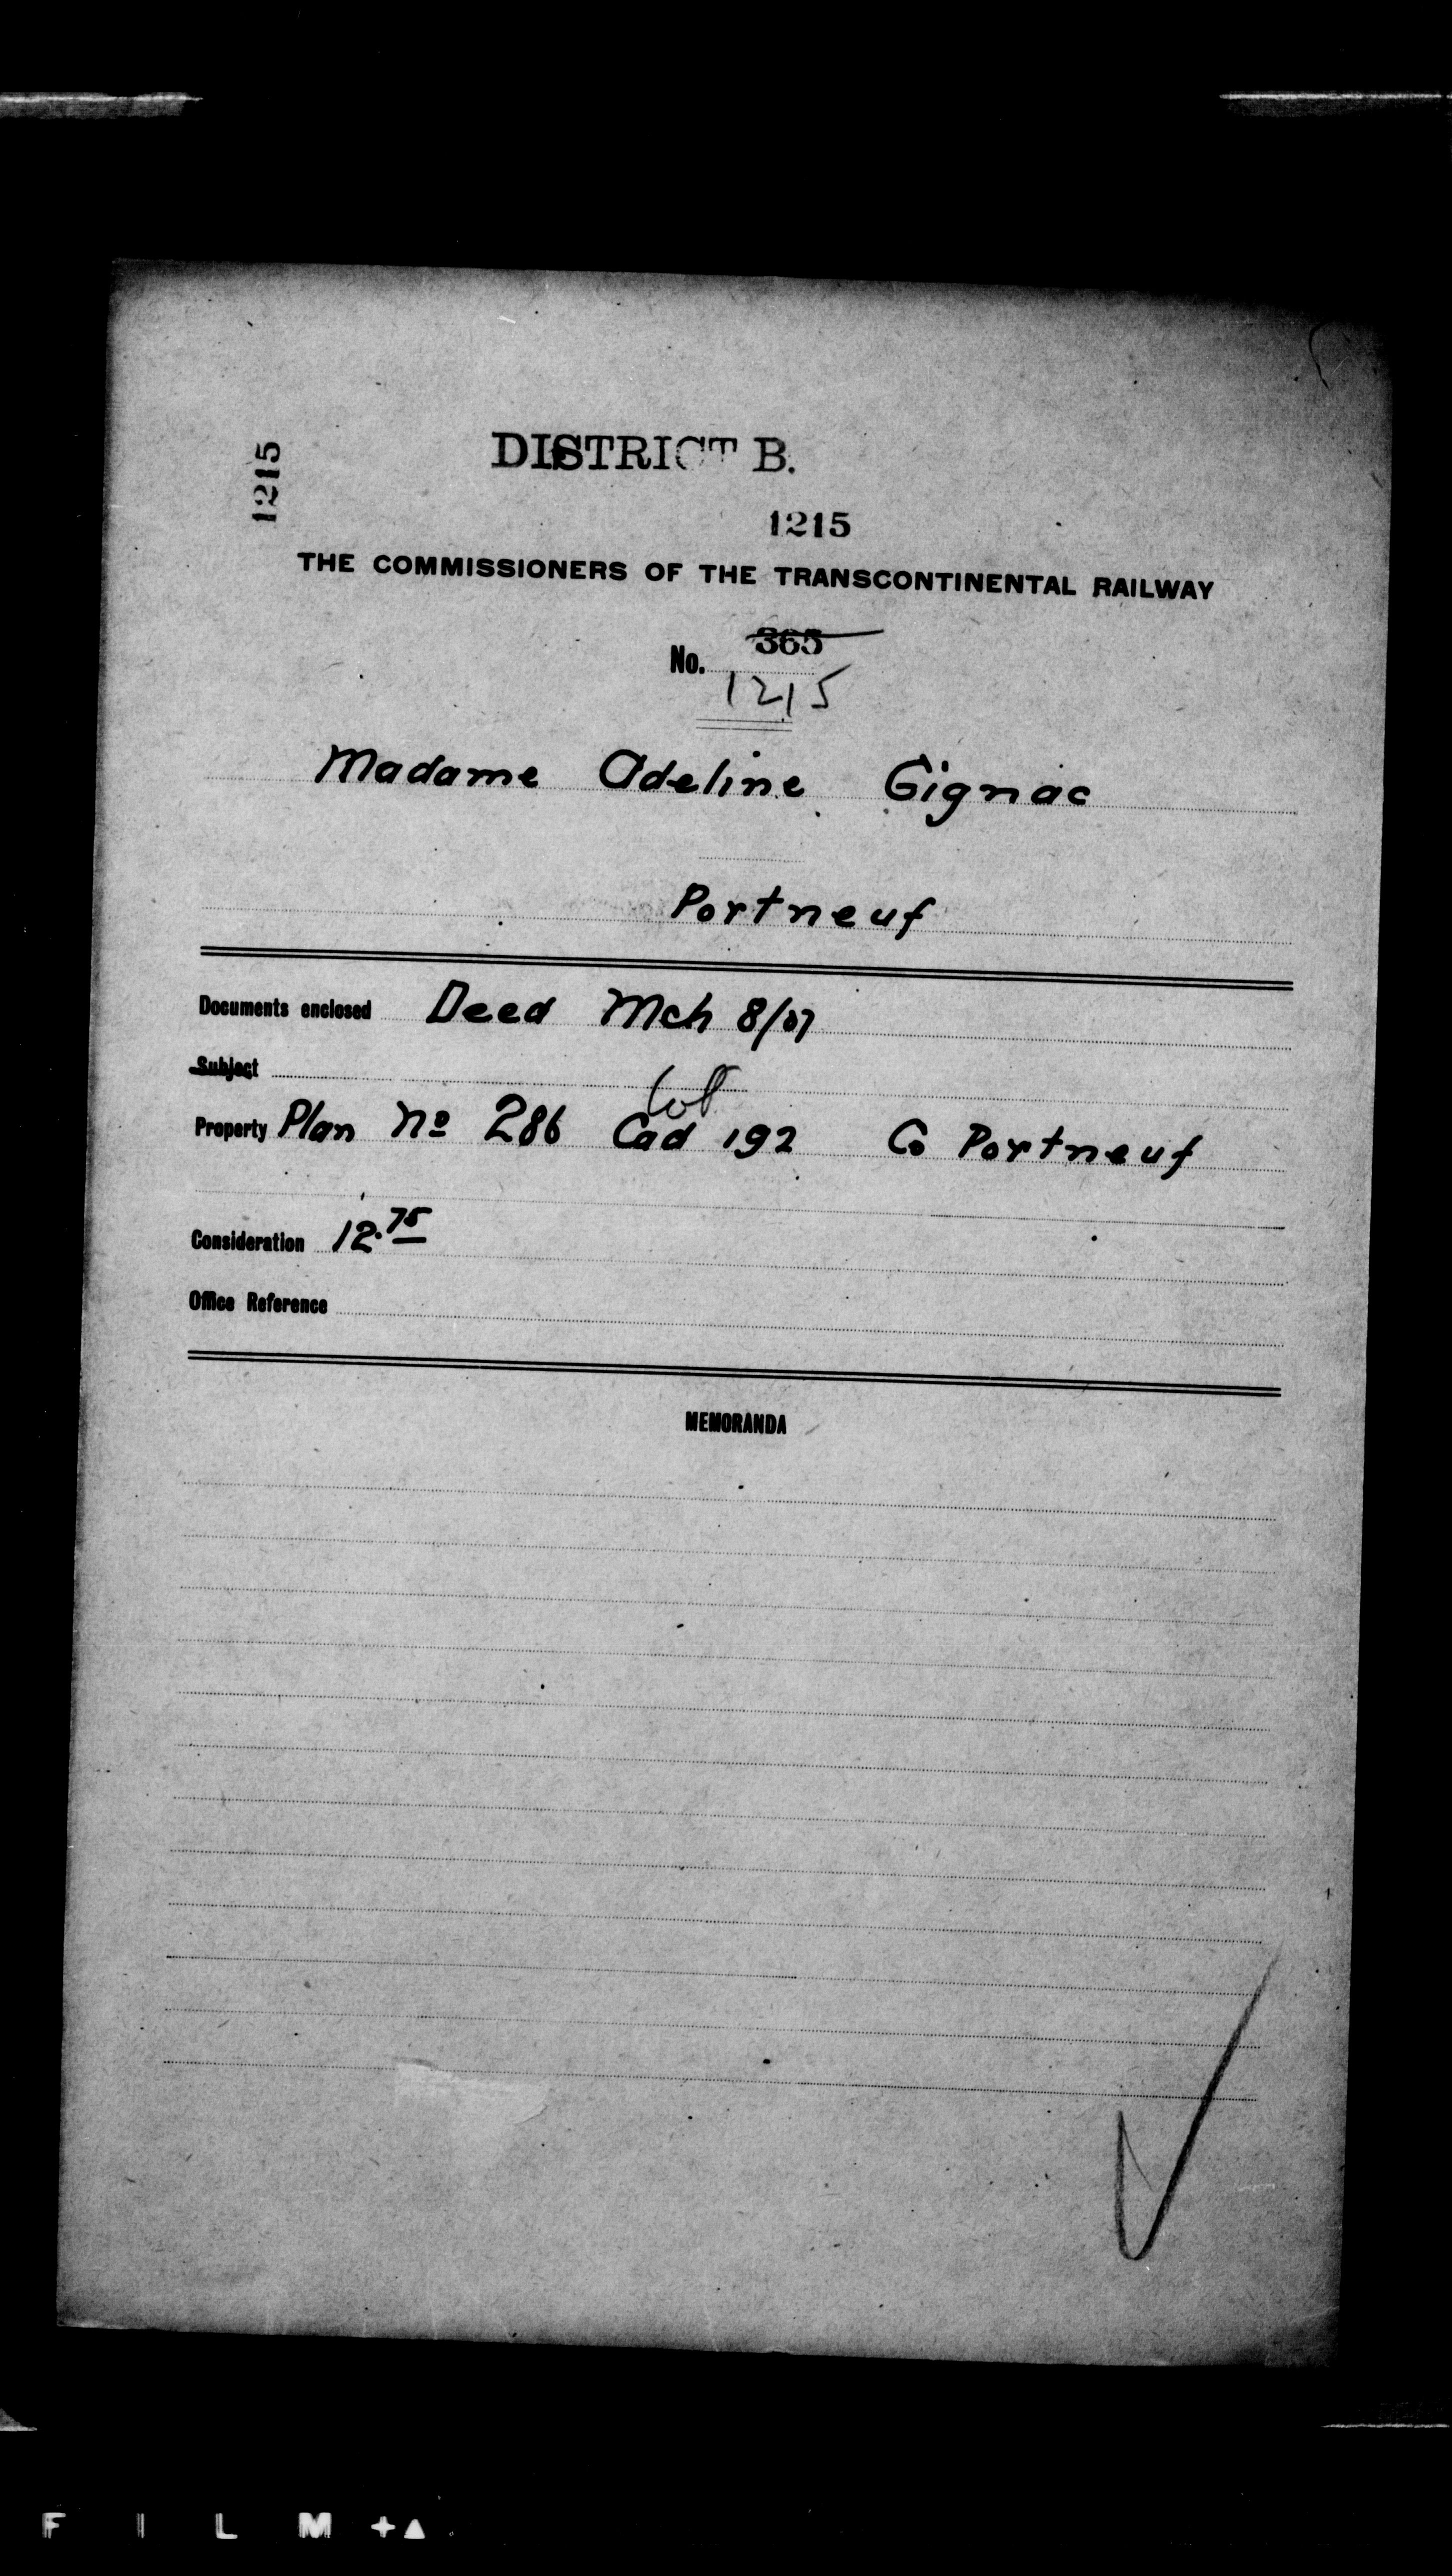 DISTRICT B.
1215
1215
THE COMMISSIONERS OF THE TRANSCONTINENTAL RAILWAY
No. 365
1215
Madame Adeline Gignac
Portneuf
Documents enclosed Deed Mch 8/07
Subject
lot
Property Plan No 286 Cad 192 Co Portneuf
Consideration 12.75
Office Reference
MEMORANDA
F I L M